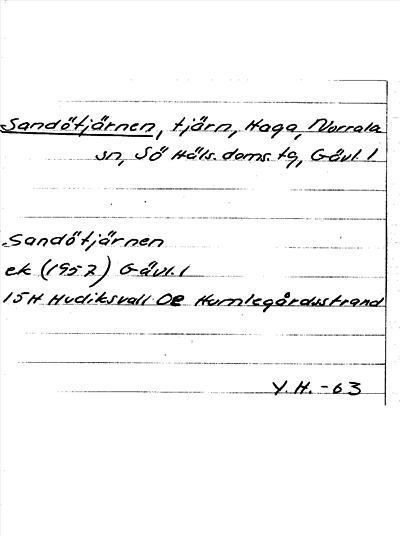 Sandötjärnen, tjärn, Haga, Norrala
sn, Sö Häls. doms. tg, Gävl. l
Sandötjärnen
ek (1957) Gävl. l
15H Hudiksvall 0e Humlegårdsstrand
Y.H. -63